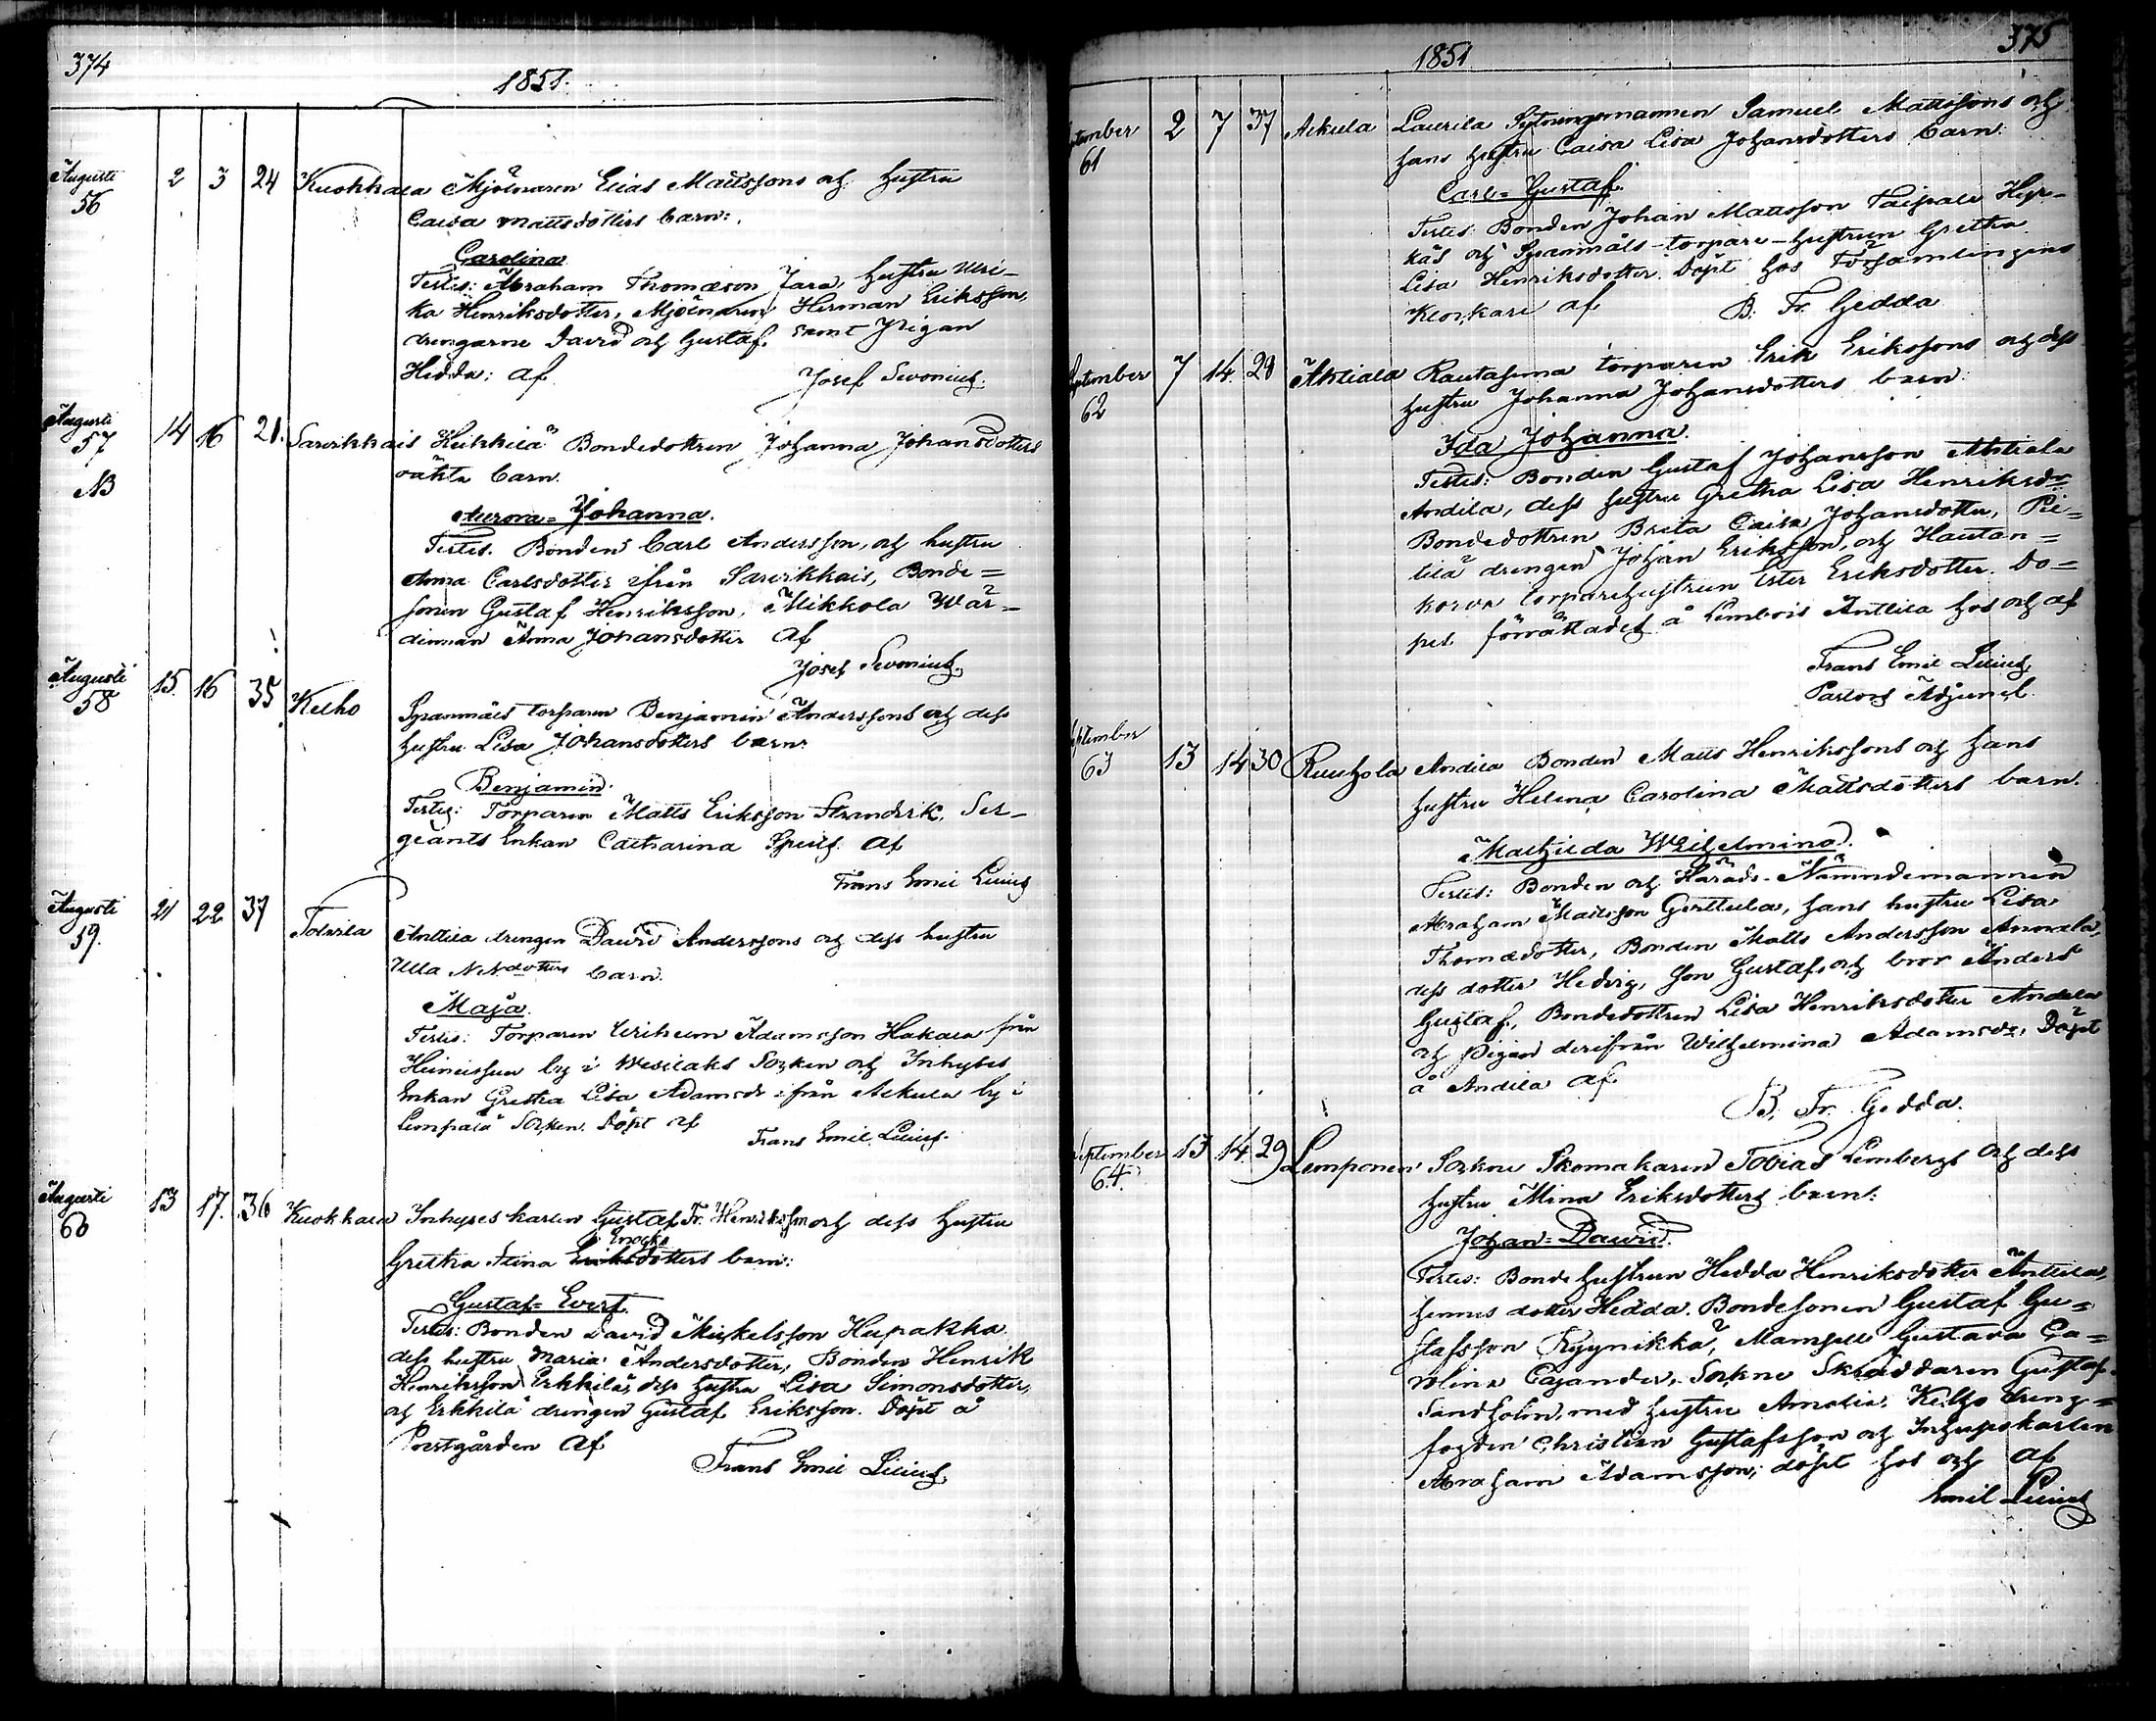 374
1851.
Augusti 2 3 24 Kuokkala Mjölnaren Elias Mattssons och hustru
56
Caisa Mattsdotters barn:
Carolina
Testes: Abraham Thomæson Jara, hustru Ulri-
ka Henriksdotter, Mjölnaren Herman Eriksson,
drengarne David och Gustaf, samt Pigan
Hedda: af Josef Sevonius.
Augusti 14 16 21. Saurikkais Heikkilä Bondedottren Johanna Johansdotters
57
NB
oäkta barn.
Aurora-Johanna.
Testes. Bonden Carl Andersson, och hustru
Anna Carlsdotter ifrån Saurikkais, Bonde=
sonen Gustaf Henriksson, Mikkola Wär-
dinnan Anna Johansdotter af
Josef Sevonius.
Augusti 15 16 35 Kelho Spannmåls torparen Benjamin Anderssons och dess
58
hustru Lisa Johansdotters barn.
Benjamin.
Testes: Torparen Matts Eriksson Strandvik, Ser-
geants Enkan Catharina af
Frans Emil Lilius
Augusti 21 22 37 Tolvila Anttila drengen David Anderssons och dess hustru
59.
Ulla N.N.dotters barn.
Maja.
Testes: Torparen Wilhelm Adamsson Hakala från
by i Wesilaks Socken och Inhyses
Enkan Gretha Lisa Adamsdr från Aekula by i
Lempälä Socken. Döpt af
Frans Emil Lilius.
Augusti 13 17. 36 Kuokkala Inhyses karlen Gustaf Fr. Henriksson och dess hustru
60
Enoks
Gretha Stina Eriksdotters barn:
Gustaf-Evert.
Testes: Bonden David Mickelsson Hupakka
dess hustru Maria Andersdotter, Bonden Henrik
Henriksson Erkkilä, dess hustru Lisa Simonsdotter,
och Erkkilä drengen Gustaf Eriksson. Döpt å
Prestgården af
Frans Emil Lilius.
375
1851
September 2 7 37 Aekula Laurila Sytningsmannen Samuel Mattssons och
61
hans hustru Caisa Lisa Johansdotters barn:
Carl-Gustaf.
Testes: Bonden Johan Mattsson Taipale Hyre-
käs och Spannmåls-torpare-hustrun Gretha
Lisa Henriksdotter. Döpt hos Församlingens
Klockare af B. Fr. Gedda
September 7 14. 28 Ahtiala Rautasima torparen Erik Erikssons och dess
62
hustru Johanna Johansdotters barn:
Ida Johanna.
Testes: Bonden Gustaf Johansson Ahtiala
Andila, dess hustru Gretha Lisa Henriksdr.
Bondedottren Brita Caisa Johansdotter, Pie=
tilä drengen Johan Eriksson, och Hautan=
korva torparehustrun Ester Eriksdotter. Do=
pet förrättades å Lembois Anttila hos och af
Frans Emil Lilius
Pastors Adjunct.
September 13 14 30 Ruuhola Andila Bonden Matts Henrikssons och hans
63
hustru Helena Carolina Mattsdotters barn.
Mathilda Wilhelmina.
Testes: Bonden och Härads-Nämndemannen
Abraham Mattsson Gerttula, hans hustru Lisa
Thomædotter, Bonden Matts Andersson Annala,
dess dotter Hedvig, son Gustaf och bror Anders
Gustaf, Bondedottren Lisa Henriksdotter Andila
och pigan derifrån Wilhelmina Adamsdr. Döpt
å Andila af
B. Fr. Gedda.
September 13 14. 29 Lemponen Sockne Skomakaren Tobias Lembergs och dess
64.
hustru Mina Eriksdotters barn:
Johan=David.
Testes: Bonde hustrun Hedda Henriksdotter Anttila,
hennes dotter Hedda. Bondesonen Gustaf Gu=
stafsson Kyynikkä, Mamsell Gustava Ca=
rolina Cajander, Sockne Skräddaren Gustaf
Sandholm, med hustru Amalia, Kelho dreng=
fogden Christian Gustafsson och Inhyseskarlen
Abraham Adamsson, döpt hos och af
Emil Lilius